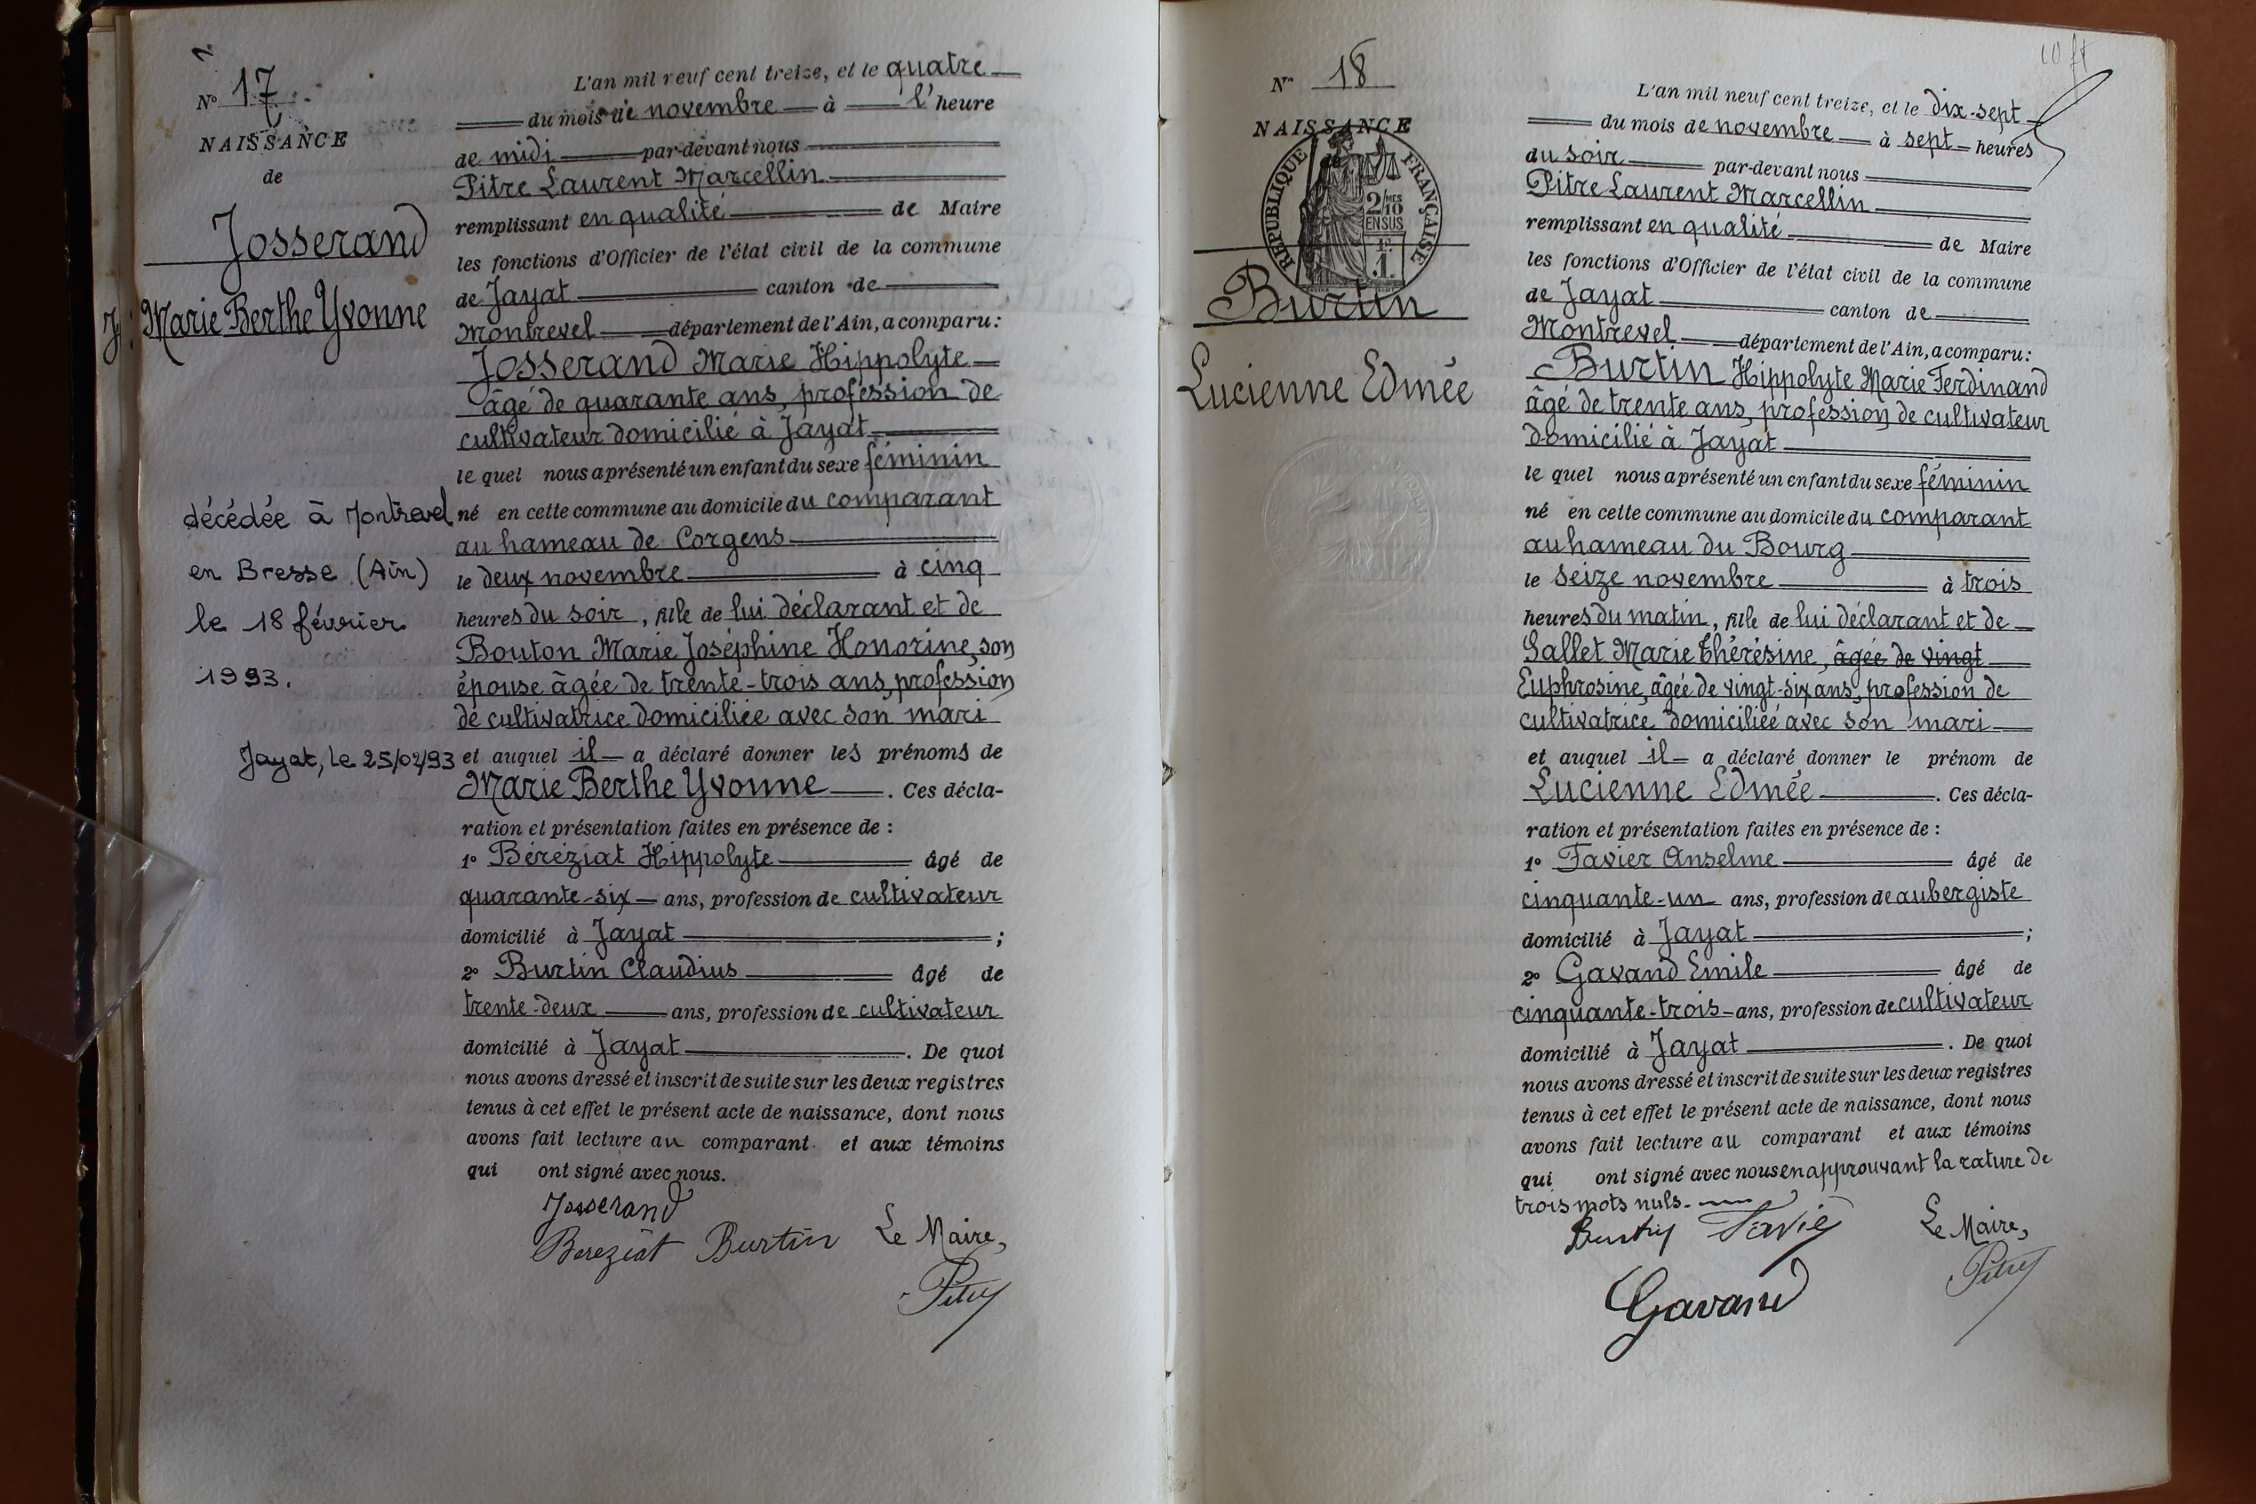 N° 17
NAISSANCE
de
Josserand
Marie Berthe Yvonne
décédée à Montrevel
en Bresse (Ain)
le 18 février
1993.
Jayat, le 25/02/93
L'an mil neuf cent treize, et le quatre
du mois de novembre à l'heure
de midi par-devant nous
Pitre Laurent Marcellin
remplissant en qualité de Maire
les fonctions d'Officier de l'état civil de la commune
de Jayat canton de
Montrevel département de l'Ain, a comparu:
Josserand Marie Hippolyte
âgé de quarante ans, profession de
cultivateur domicilié à Jayat
le quel nous a présenté un enfant du sexe féminin
né en cette commune au domicile du comparant
au hameau de Corgens
le deux novembre à cinq
heures du soir, fille de lui déclarant et de
Bouton Marie Joséphine Honorine, son
épouse âgée de trente-trois ans, profession
de cultivatrice domiciliée avec son mari
et auquel il a déclaré donner les prénoms de
Marie Berthe Yvonne. Ces décla-
ration et présentation faites en présence de :
1° Béréziat Hippolyte âgé de
quarante-six ans, profession de cultivateur
domicilié à Jayat ;
2° Burtin Claudius âgé de
trente-deux ans, profession de cultivateur
domicilié à Jayat. De quoi
nous avons dressé et inscrit de suite sur les deux registres
tenus à cet effet le présent acte de naissance, dont nous
avons fait lecture au comparant et aux témoins
qui ont signé avec nous.
Josserand
Bereziat Burtin Le Maire,
Pitre
N° 18
NAISSANCE
RÉPUBLIQUE FRANÇAISE
2/10 MES
EN SUS
1F.
Burtin
Lucienne Edmée
L'an mil neuf cent treize, et le dix-sept
du mois de novembre à sept heures
du soir par-devant nous
Pitre Laurent Marcellin
remplissant en qualité de Maire
les fonctions d'Officier de l'état civil de la commune
de Jayat canton de
Montrevel département de l'Ain, a comparu:
Burtin Hippolyte Marie Ferdinand
âgé de trente ans, profession de cultivateur
domicilié à Jayat
le quel nous a présenté un enfant du sexe féminin
né en cette commune au domicile du comparant
au hameau du Bourg
le seize novembre à trois
heures du matin, fille de lui déclarant et de
Sallet Marie Thérésine, âgée de vingt
Euphrosine, âgée de vingt-six ans, profession de
cultivatrice domiciliée avec son mari
et auquel il a déclaré donner le prénom de
Lucienne Edmée. Ces décla-
ration et présentation faites en présence de :
1° Favier Anselme âgé de
cinquante-un ans, profession de aubergiste
domicilié à Jayat ;
2° Gavand Emile âgé de
cinquante-trois ans, profession de cultivateur
domicilié à Jayat. De quoi
nous avons dressé et inscrit de suite sur les deux registres
tenus à cet effet le présent acte de naissance, dont nous
avons fait lecture au comparant et aux témoins
qui ont signé avec nous en approuvant la rature de
trois mots nuls.
Burtin Favier Le Maire,
Pitre
Gavand